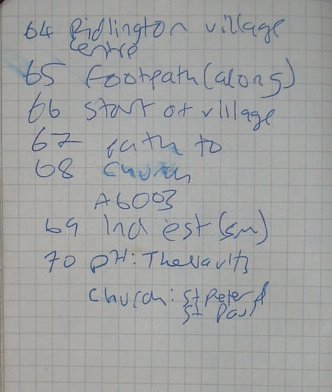 64 Ridlington village
centre
65 Footpath (along)
66 start of village
67 path to
68 church
A6003
69 Ind est (sm)
70 PH:
Church: St Peter &
St Paul